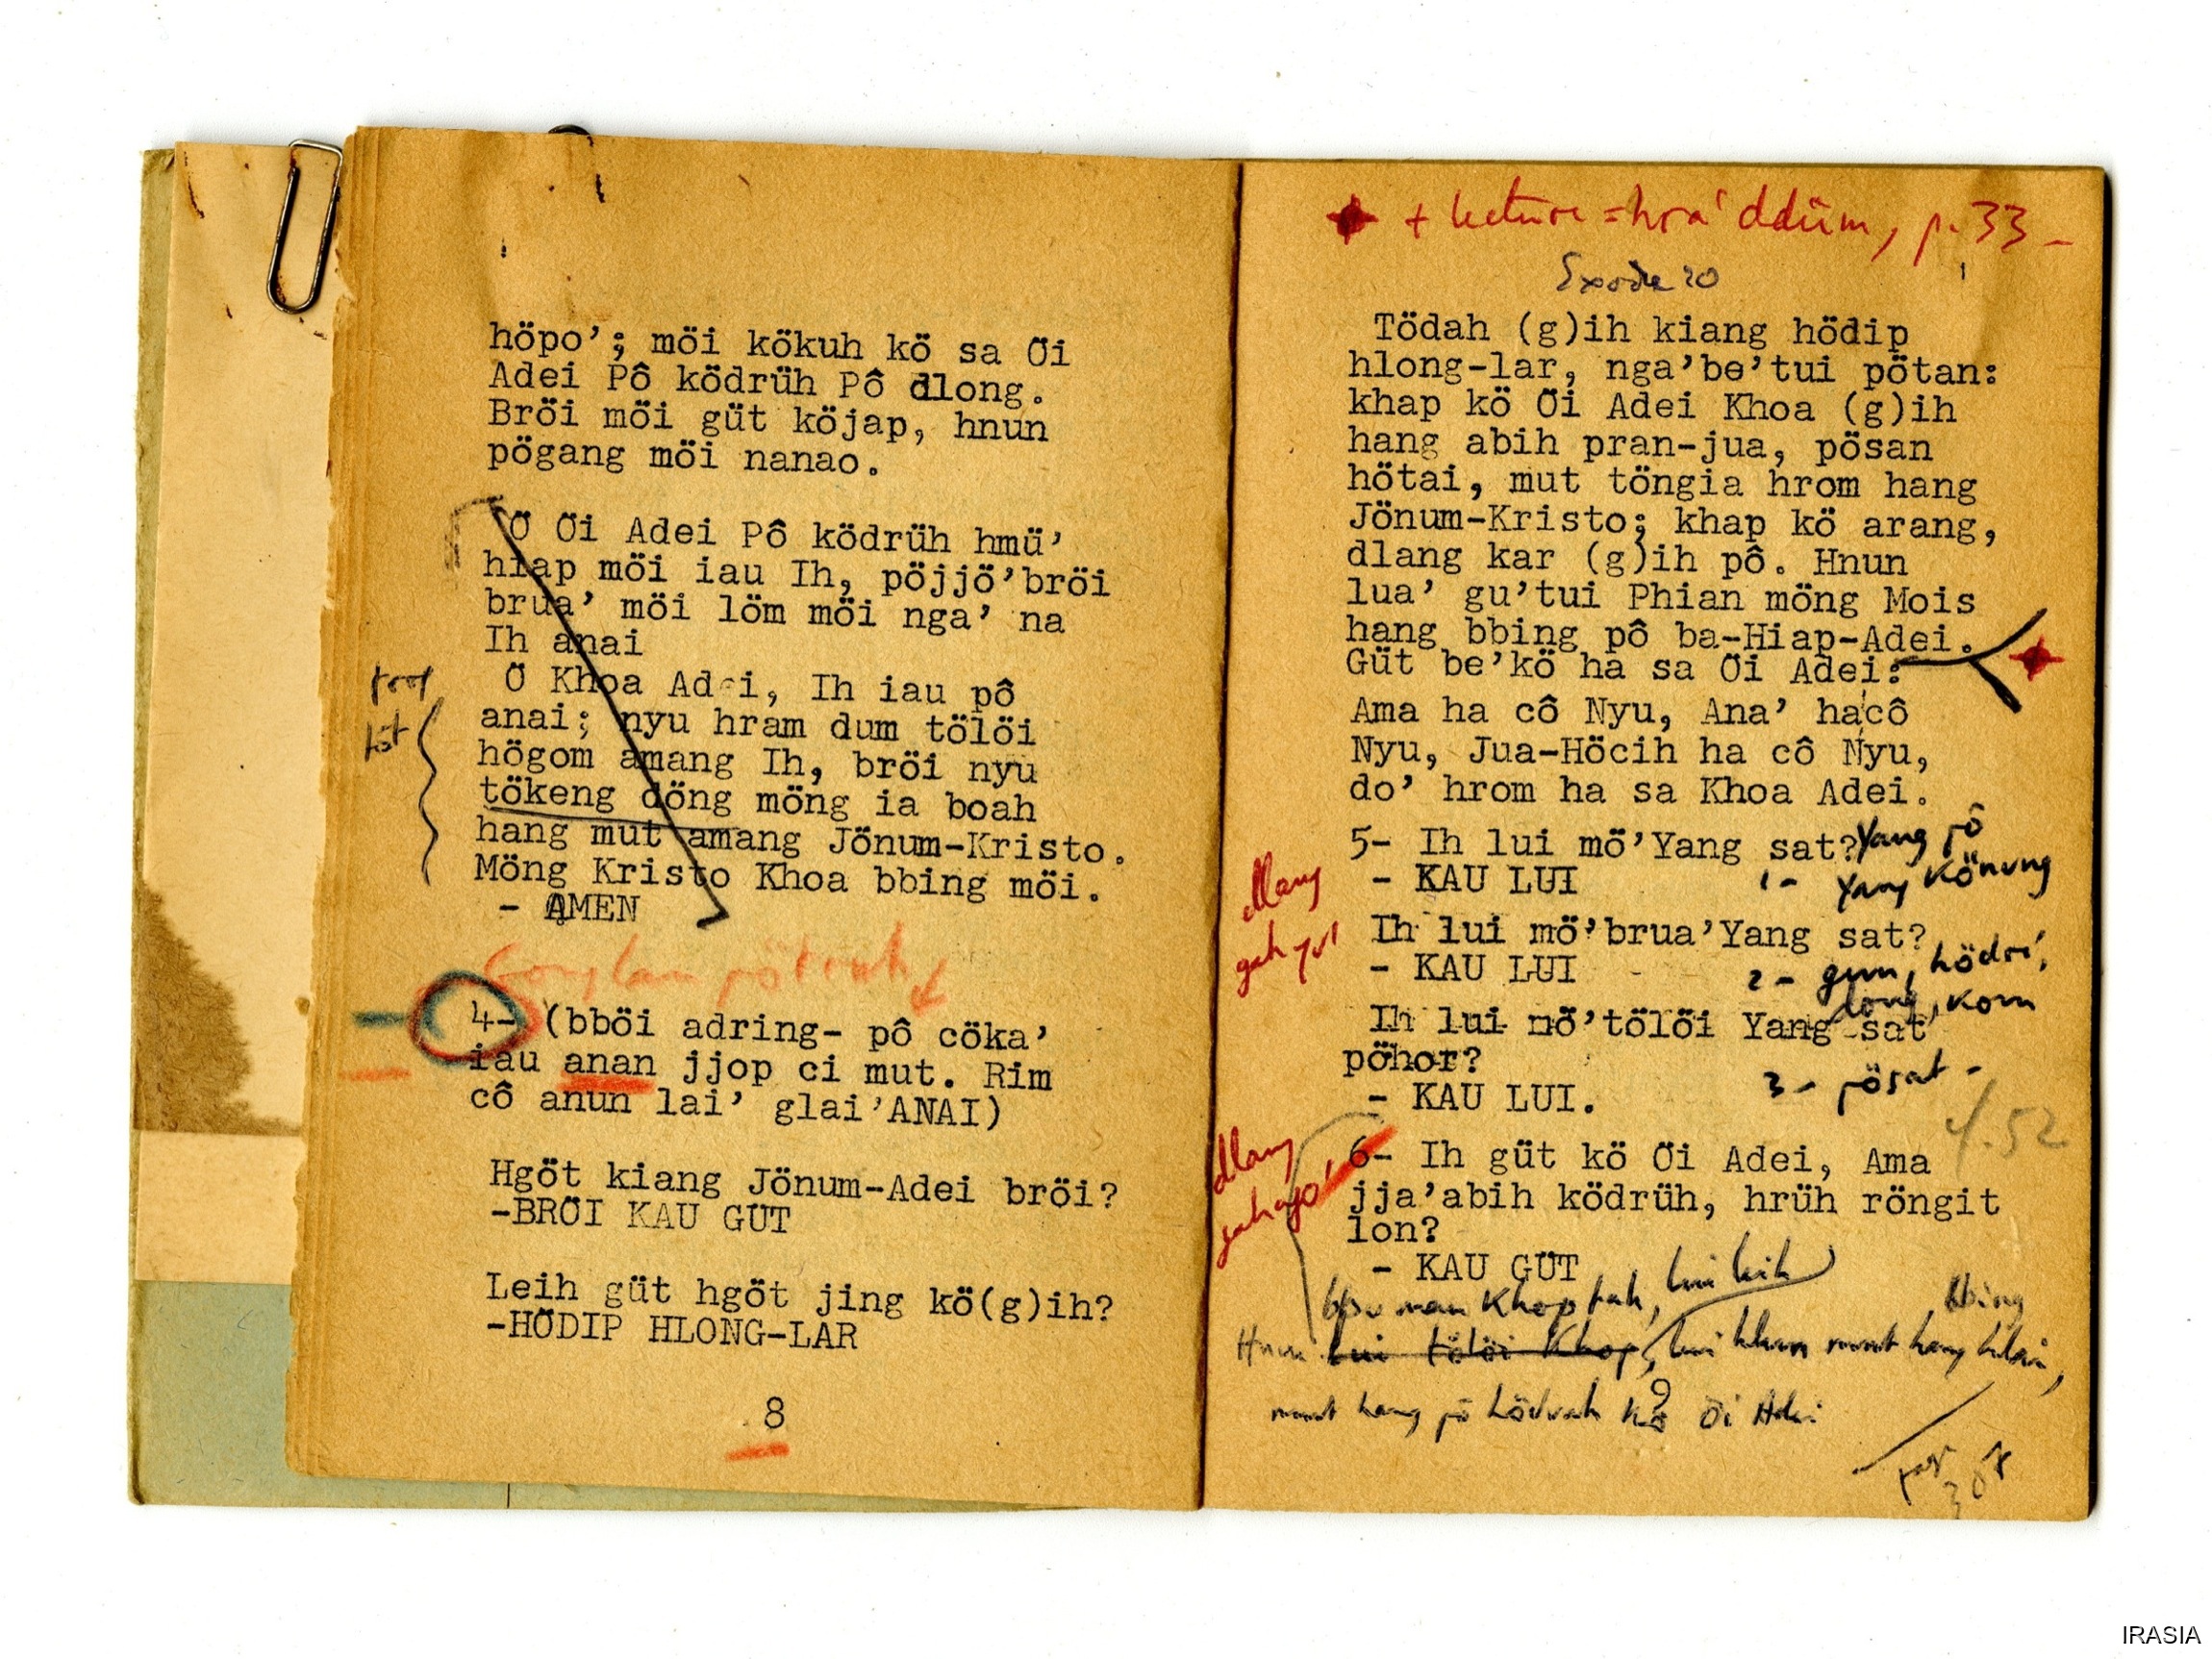 höpo’; möi kökuh kö sa Öi
Adei Pô ködrüh Pô dlong.
Bröi möi güt köjap, hnun
pögang möi nanao.
Ö Öi Adei Pô ködrüh hmü’
hiap möi iau Ih, pöjjö’bröi
brua’ möi löm möi nga’ na
Ih anai
Ö Khoa Adei, Ih iau pô
anai; nyu hram dum tölöi
högom amang Ih, bröi nyu
tökeng döng möng ia boah
hang mut amang Jönum-Kristo.
Möng Kristo Khoa bbing möi.
- AMEN
4- (bböi adring- pô cöka’
iau anan jjop ci mut. Rim
cô anun lai’ glai’ANAI)
Hgöt kiang Jönum-Adei bröi?
-BRÖI KAU GÜT
Leih güt hgöt jing kö(g)ih?
-HÖDIP HLONG-LAR
8
+ lecture = hra' ddüm, p. 33 -
Exode 20
Tödah (g)ih kiang hödip
hlong-lar, nga’be’tui pötan:
khap kö Öi Adei Khoa (g)ih
hang abih pran-jua, pösan
hötai, mut töngia hrom hang
Jönum-Kristo; khap kö arang,
dlang kar (g)ih pô. Hnun
lua’ gu’tui Phian möng Mois
hang bbing pô ba-Hiap-Adei.
Güt be’kö ha sa Öi Adei:
Ama ha cô Nyu, Ana’ hacô
Nyu, Jua-Höcih ha cô Nyu,
do’ hrom ha sa Khoa Adei.
5- Ih lui mö’Yang sat? Yang pô
- KAU LUI 1- Yang Könung
dlang
gah yu'
Ih lui mö’brua’Yang sat?
- KAU LUI 2- gun, hödri',
dong, kom
Ih lui mö’tölöi Yang sat
pöhor?
- KAU LUI. 3- pösat -
p. 52
dlang
6- Ih güt kö Öi Adei, Ama
jja’abih ködrüh, hrüh röngit
lon?
- KAU GÜT
lui tölöi Khop, lui
mut hang pô hödrah kö Öi Adei